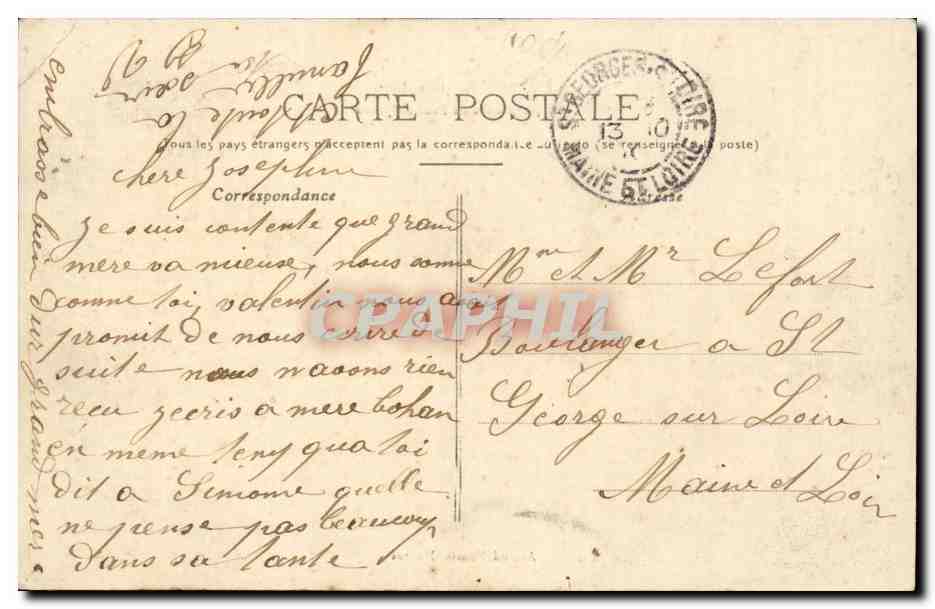 CARTE POSTALE
Tous les pays étrangers n'acceptent pas la correspondance au recto (se renseigner à la poste)
Correspondance
chere Josephine
Je suis contente que grand
mere va mieuse, nous somme
comme toi, valentin nous avait
promit de nous ecrire de
suite nous n'avons rien
recu jecris a mere bohan
en meme temps qua toi
dit a Simone quelle
ne pense pas beaucoup
dans sa tante
embrasse bien dur grand mere
toute la
famille
ST GEORGES-S-LOIRE
13 10
MAINE ET LOIRE
Mme et Mr Lefort
Boulanger a St
George sur Loire
Maine et Loir
CPAPHIL